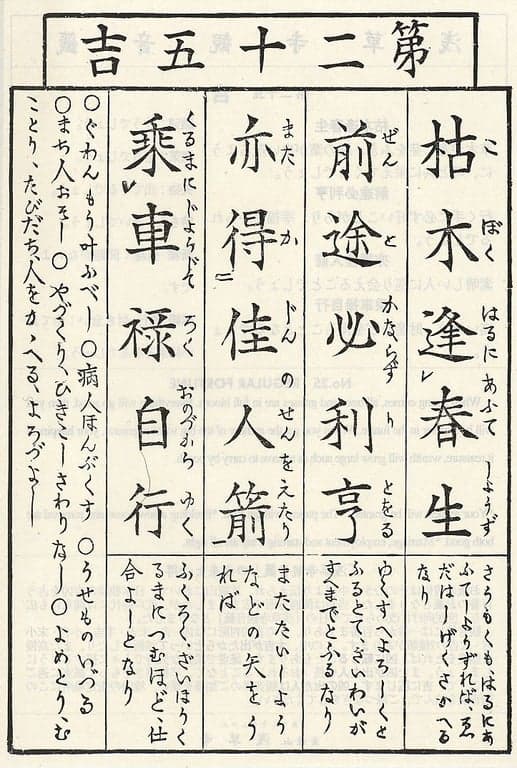 第二十五吉
枯木逢春生
こぼくはるにあふてしようず
前途必利亨
ぜんとかならずりとをる
亦得佳人箭
またかじんのせんをえたり
乗車禄自行
くるまにじようじてろくおのづからゆく
さうもくも、はるにあ
ふてしようずれば、ゑ
だはしげくさかへる
なり
ゆくすへよろしくと
ふるとて、さいわいが
すへまでとふるなり
またたいしよう
などの矢をう
れば
ふくろく、ざいほうく
るまにつむほど、仕
合よしとなり
〇ぐわんもう叶ふべし 〇病人ほんぶくす 〇うせものいづる
〇まち人おそし 〇やづくり、ひきこしさわりなし 〇よめとり、む
ことり、たびだち、人をかゝへる、よろづよし